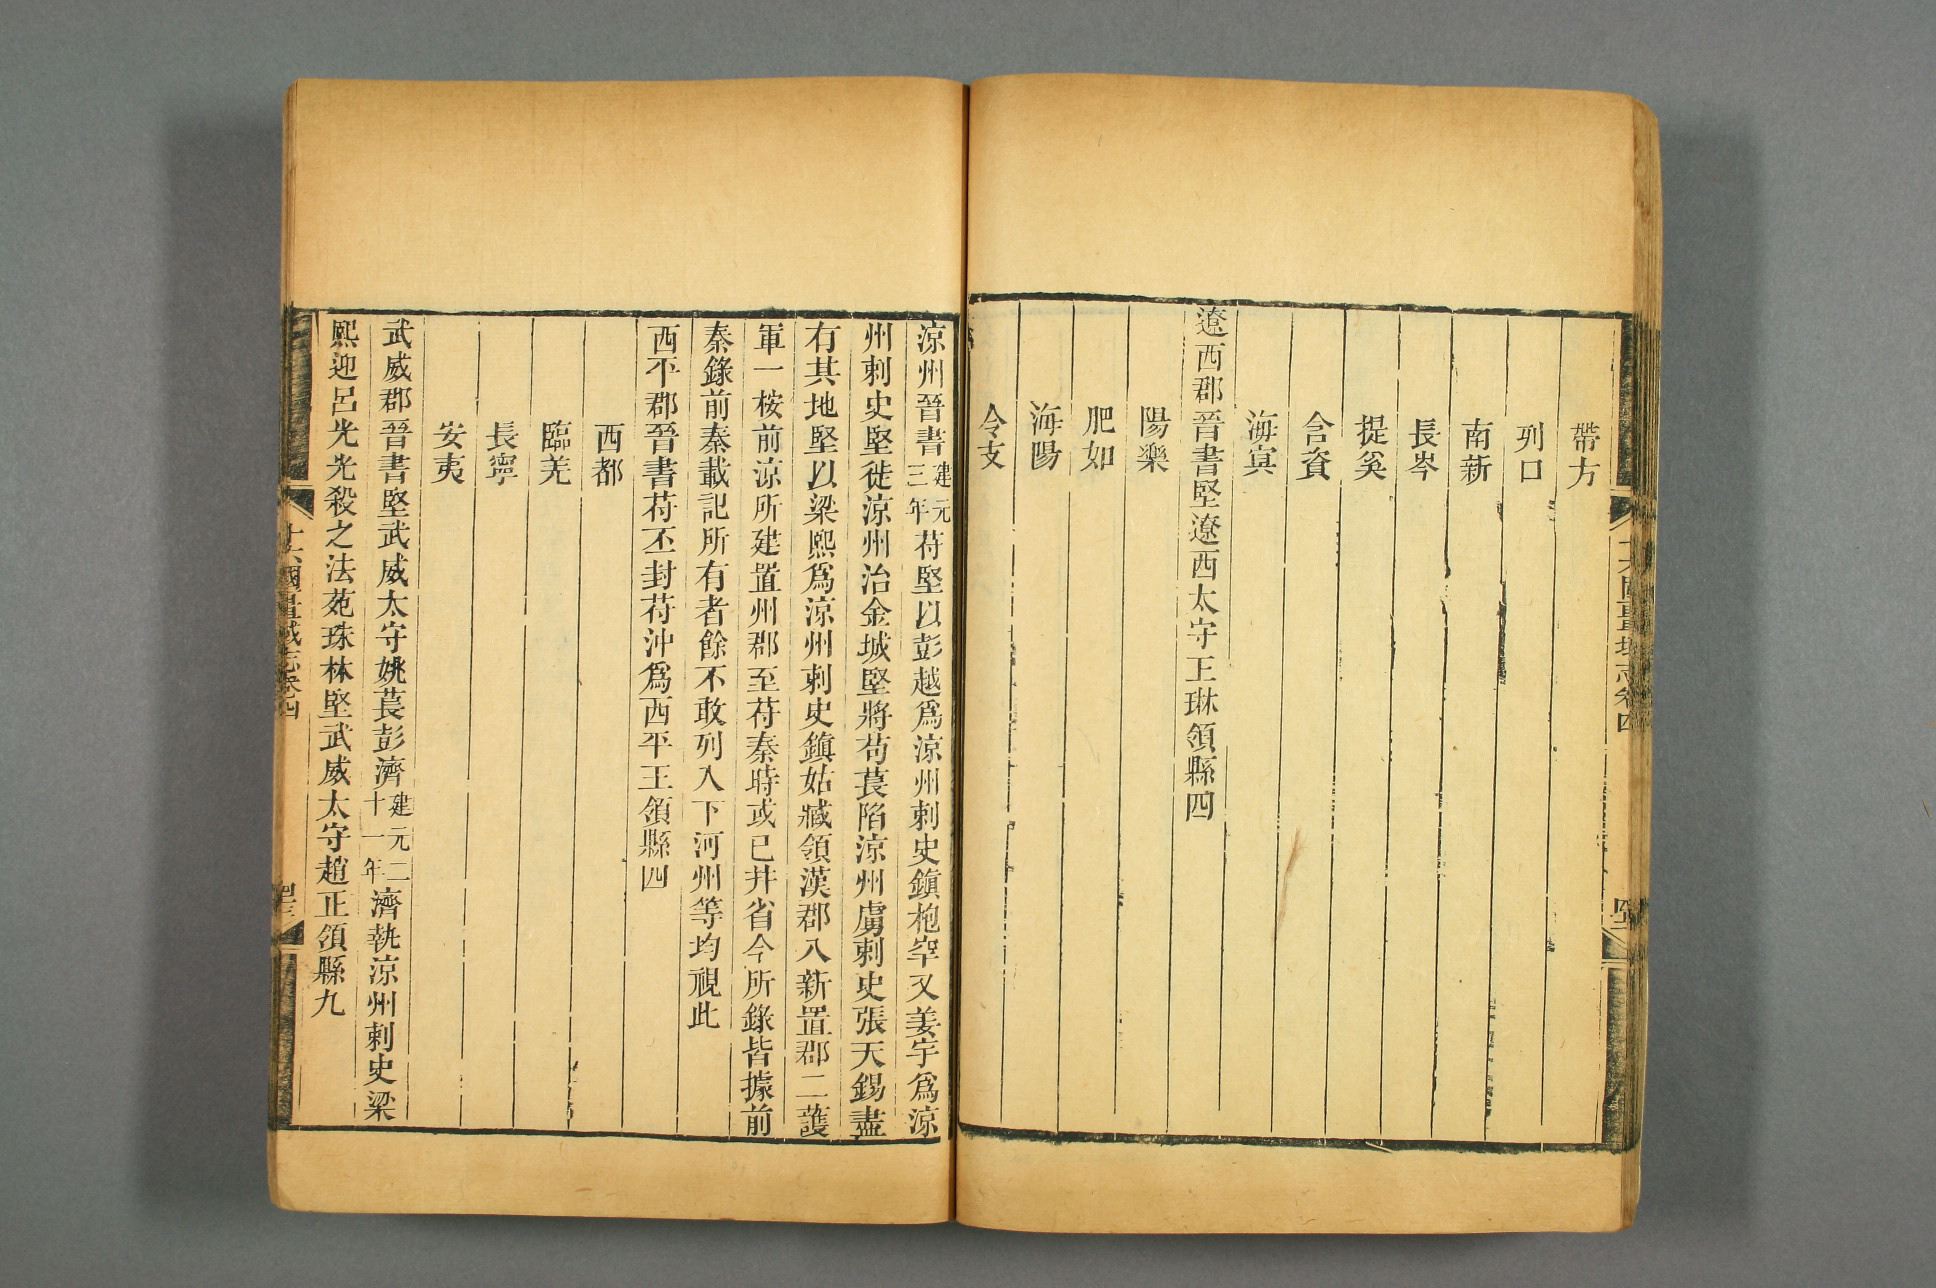 帶方
列口
南新
長岑
提奚
含資
海㝠
遼西郡晉書堅遼西太守王琳領縣四
陽樂
肥如
海陽
令支
涼州晉書建元三年苻堅以彭越爲涼州刺史鎮枹罕又姜宇爲涼
州刺史堅徙涼州治金城堅將苟萇陷涼州虜刺史張天錫盡
有其地堅以梁熙爲涼州刺史鎮姑臧領漢郡八新置郡二護
軍一桉前涼所建置州郡至苻秦時或已并省今所錄皆據前
秦錄前秦載記所有者餘不敢列入下河州等均視此
西平郡晉書苻丕封苻沖爲西平王領縣四
西都
臨羌
長寧
安夷
武威郡晉書堅武威太守姚萇彭濟建元二十一年濟執涼州刺史梁
熙迎呂光光殺之法苑珠林堅武威太守趙正領縣九
十六國疆域志卷四